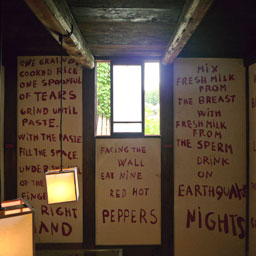 ONE GRAIN
COOKED RICE
ONE SPOONFUL
OF TEARS
GRIND UNTIL
PASTE
WITH THE PASTE
FILL THE SPACE
UNDER
OF THE
FINGER
RIGHT
HAND
FACING THE
WALL
EAT NINE
RED HOT
PEPPERS
MIX
FRESH MILK FROM
THE BREAST
WITH
FRESH MILK
FROM
THE SPERM
DRINK
ON
EARTHQUAKE
NIGHTS